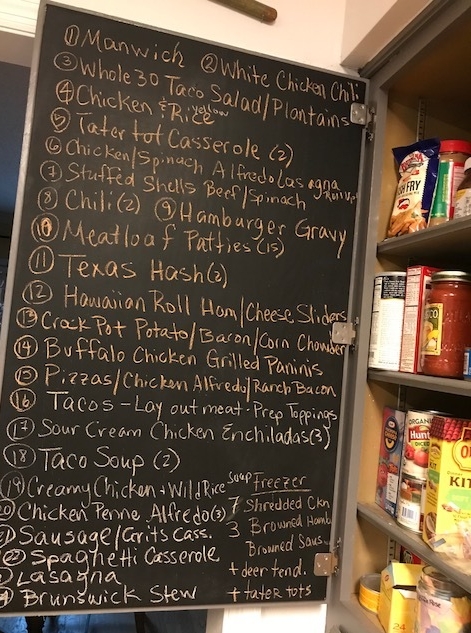 ① Manwich ② White Chicken Chili
③ Whole 30 Taco Salad/Plantains
④ Chicken & Yellow Rice
⑤ Tater tot Casserole (2)
⑥ Chicken/Spinach Alfredo Lasagna Roll Ups
⑦ Stuffed Shells Beef/Spinach
⑧ Chili (2) ⑨ Hamburger Gravy
⑩ Meatloaf Patties (15)
⑪ Texas Hash (2)
⑫ Hawaiian Roll Ham/Cheese Sliders
⑬ Crock Pot Potato/Bacon/Corn Chowder
⑭ Buffalo Chicken Grilled Paninis
⑮ Pizzas/Chicken Alfredo/Ranch Bacon
⑯ Tacos - Lay out meat - Prep Toppings
⑰ Sour Cream Chicken Enchiladas (3)
⑱ Taco Soup (2)
⑲ Creamy Chicken + Wild Rice Soup
20 Chicken Penne Alfredo (3)
Sausage/Grits Cass.
㉒ Spaghetti Casserole
Lasagna
Brunswick Stew
Freezer
7 Shredded Ckn
3 Browned Hamb
Browned Saus
+ deer tend.
+ tater tots
FRY
ORGANIC
Hunt
DICED
KIT
24